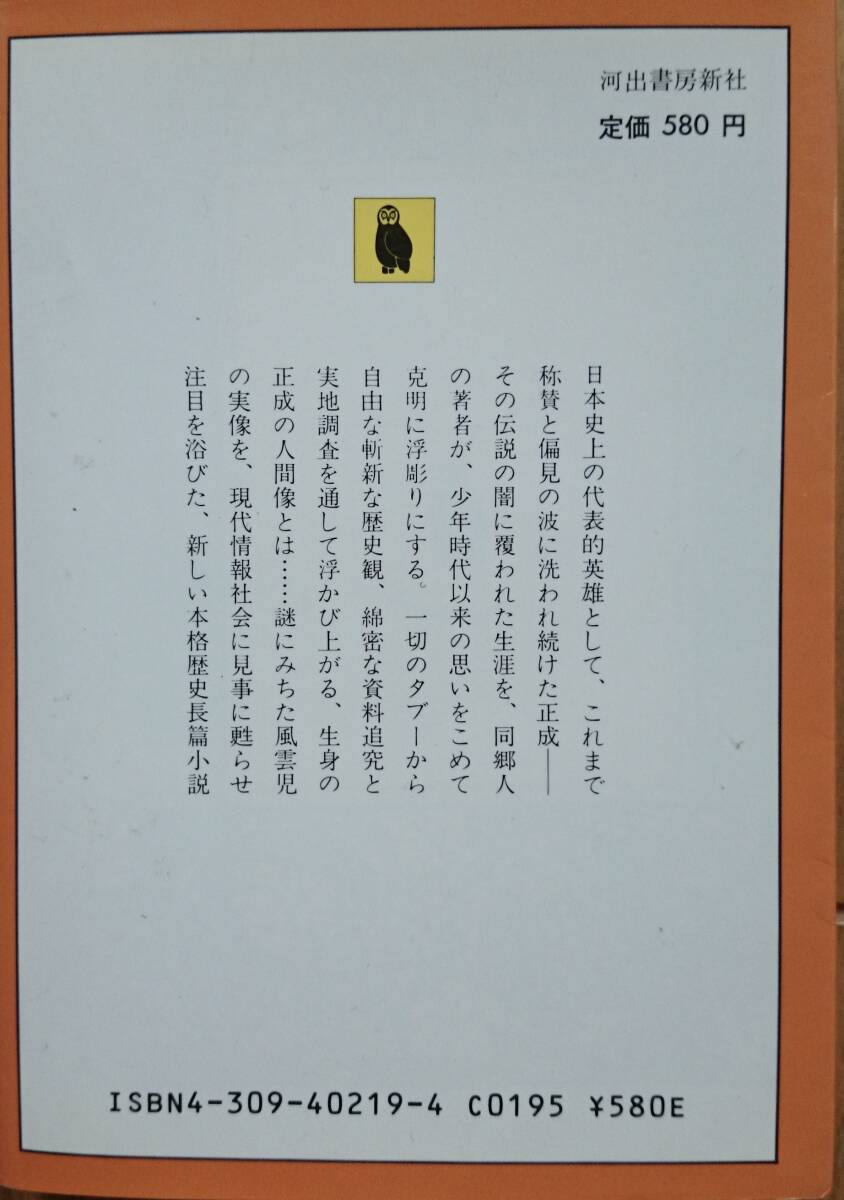 河出書房新社
定価 580 円
日本史上の代表的英雄として、これまで
称賛と偏見の波に洗われ続けた正成――
その伝説の闇に覆われた生涯を、同郷人
の著者が、少年時代以来の思いをこめて
克明に浮彫りにする。一切のタブーから
自由な斬新な歴史観、綿密な資料追究と
実地調査を通して浮かび上がる、生身の
正成の人間像とは……謎にみちた風雲児
の実像を、現代情報社会に見事に甦らせ
注目を浴びた、新しい本格歴史長篇小説
ISBN4-309-40219-4 C0195 ¥580E